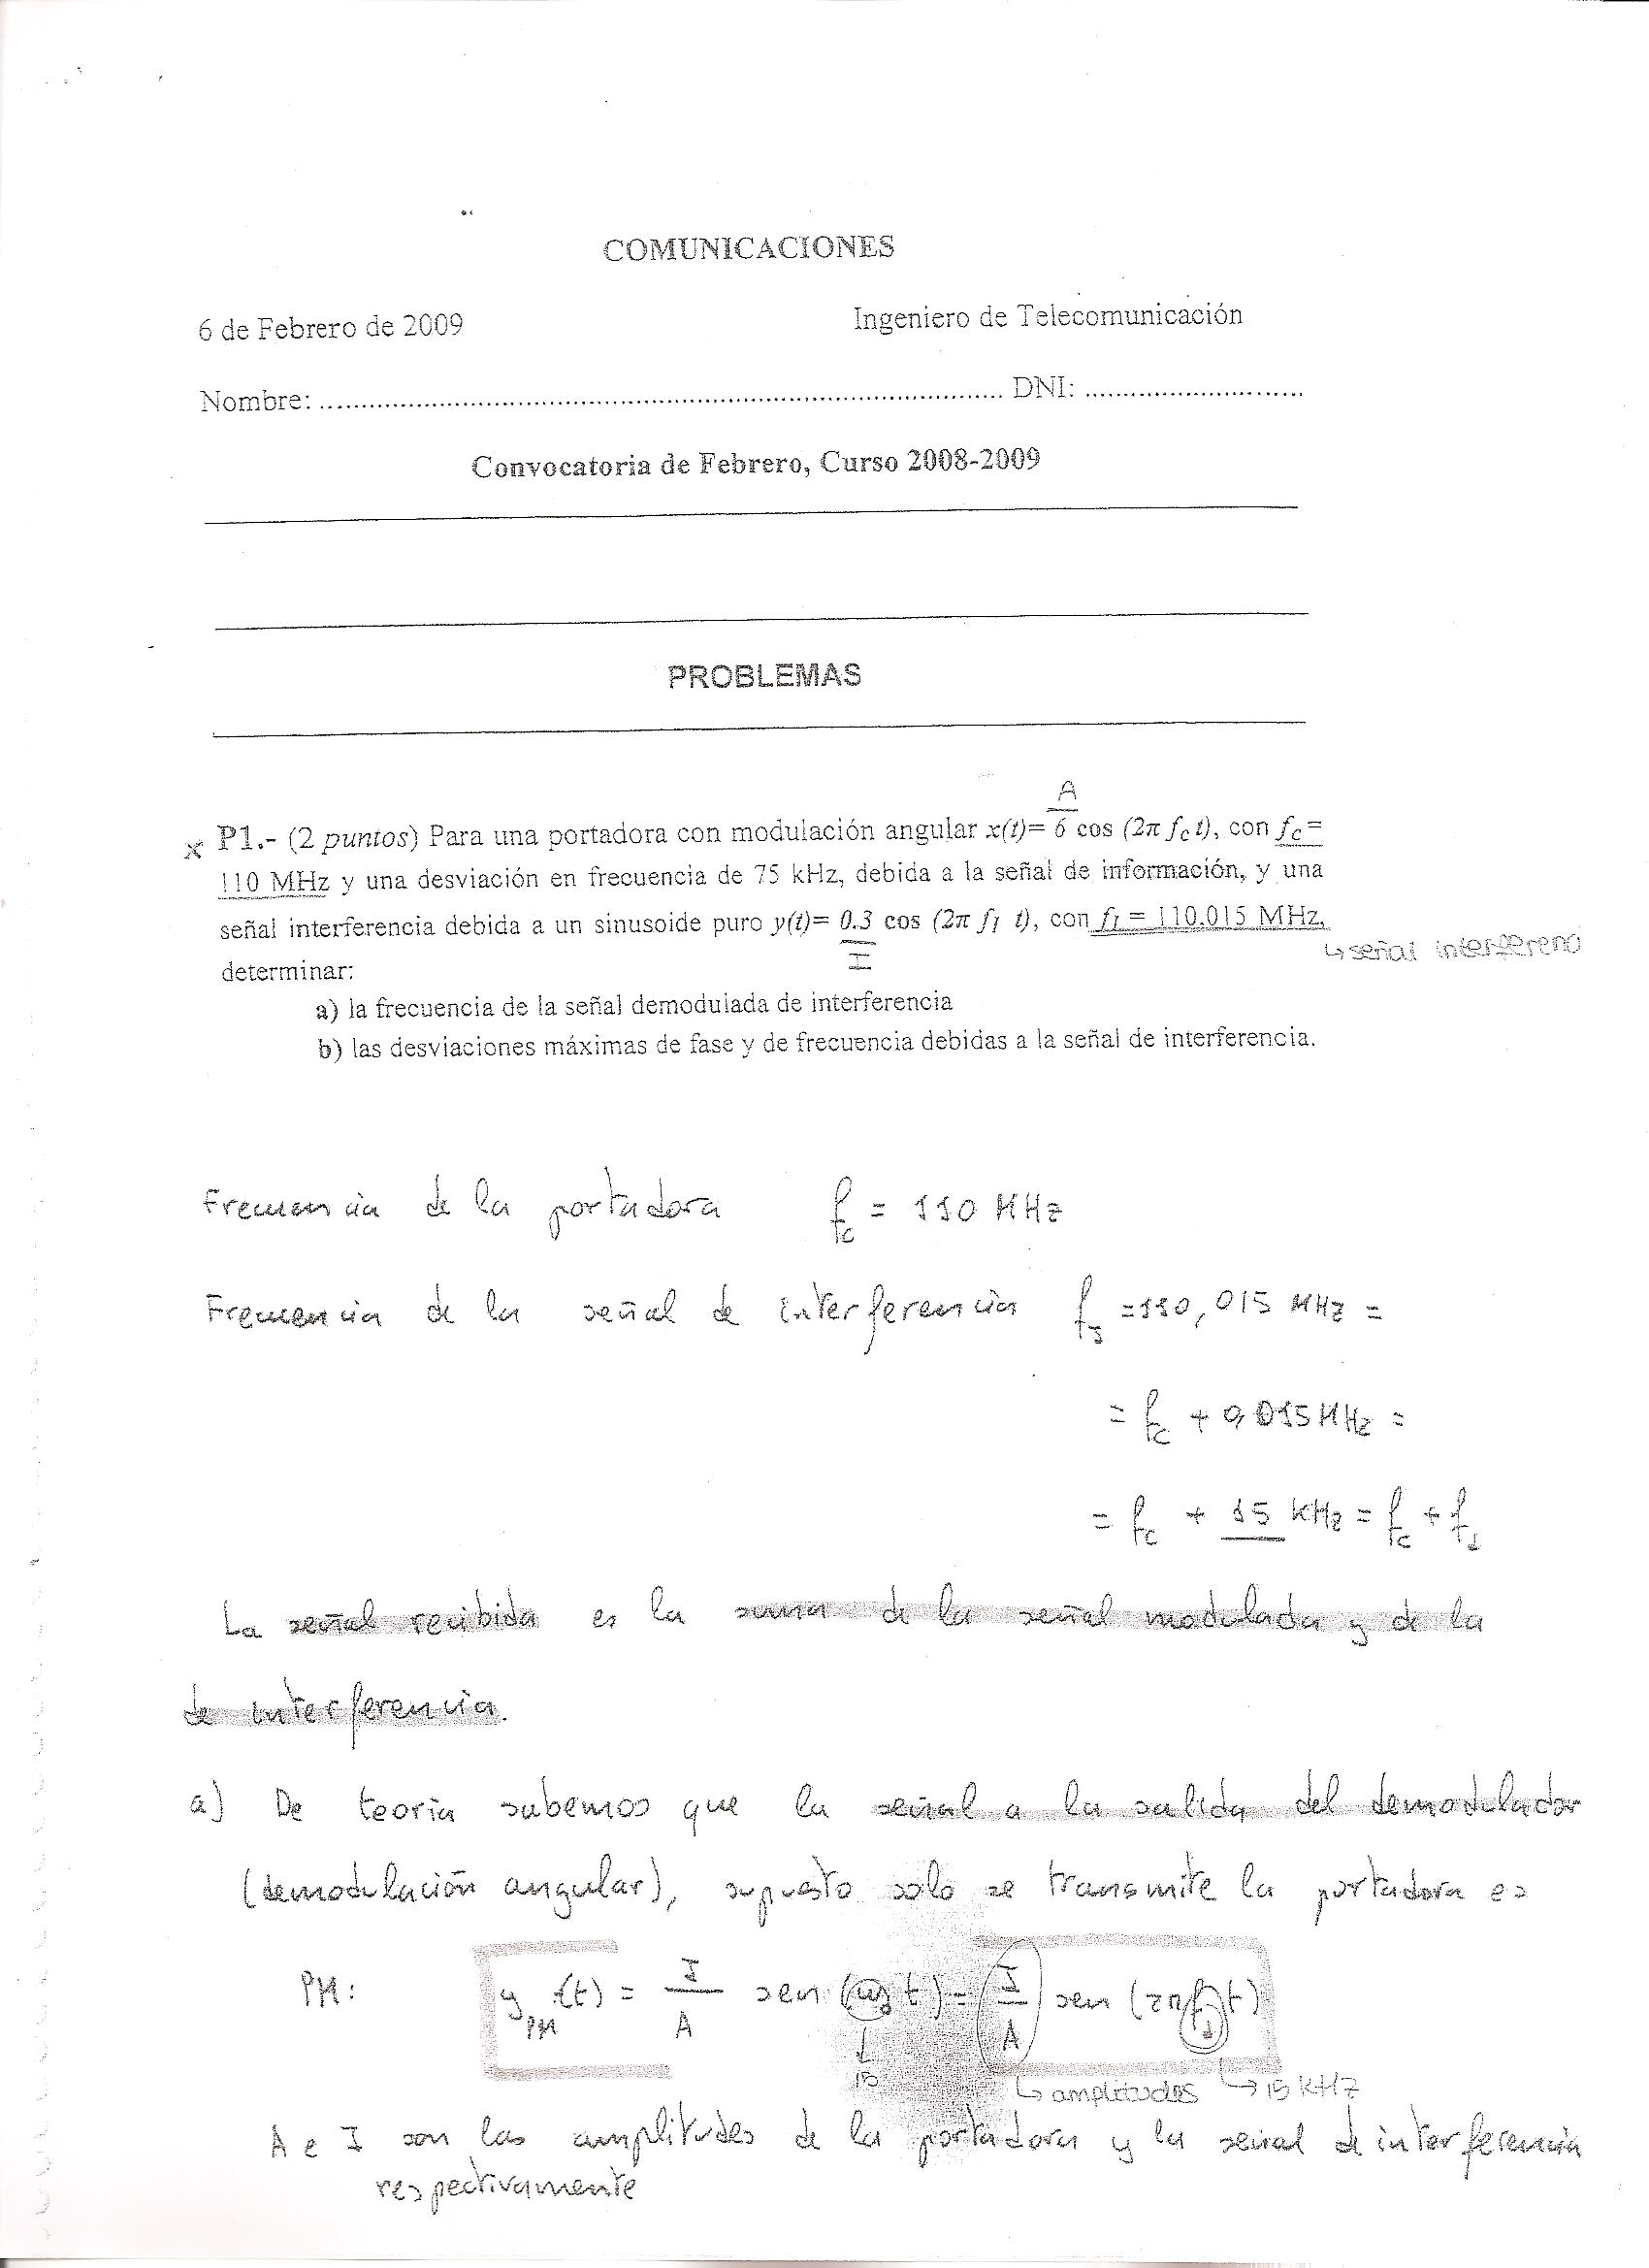 COMUNICACIONES
6 de Febrero de 2009 Ingeniero de Telecomunicación
Nombre: ........................................................................................ DNI: ............................
Convocatoria de Febrero, Curso 2008-2009
PROBLEMAS
A
x P1.- (2 puntos) Para una portadora con modulación angular x(t)= 6 cos (2π fc t), con fc =
110 MHz y una desviación en frecuencia de 75 kHz, debida a la señal de información, y una
señal interferencia debida a un sinusoide puro y(t)= 0.3 cos (2π fI t), con fI = 110.015 MHz,
I ↳ señal interfereno
determinar:
a) la frecuencia de la señal demodulada de interferencia
b) las desviaciones máximas de fase y de frecuencia debidas a la señal de interferencia.
Frecuencia de la portadora fc = 110 MHz
Frecuencia de la señal de interferencia fI = 110,015 MHz =
= fc + 0,015 MHz =
= fc + 15 KHz = fc + f1
La señal recibida es la suma de la señal modulada y de la
de interferencia.
a) De teoría sabemos que la señal a la salida del demodulador
(demodulación angular), supuesto solo se transmite la portadora es
PM: yPM (t) = I/A sen (ω1 t) = (I/A) sen (2π f1 t)
↓ 15 ↳ amplitudes ↳ 15 KHz
A e I son las amplitudes de la portadora y la señal de interferencia
respectivamente